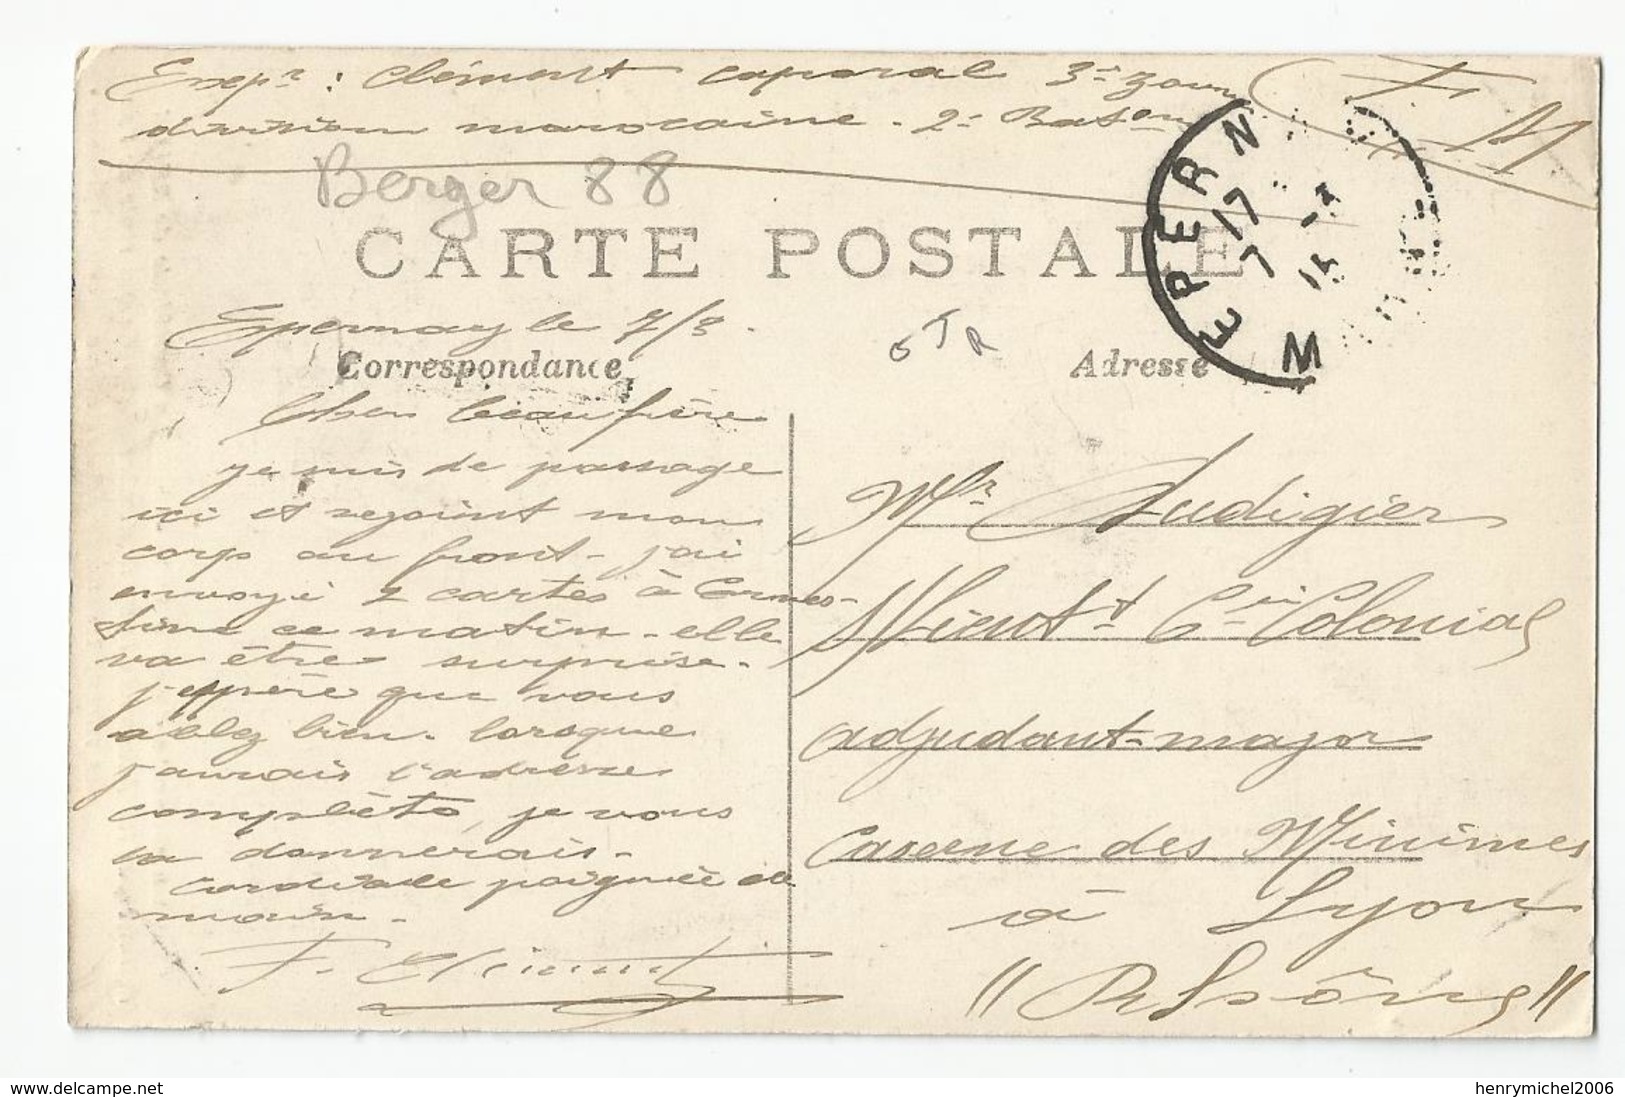 Exp.r : Clément caporal 3e zouaves
division marocaine - 2e Baton
F M
Berger 88
CARTE POSTALE
EPERN
17
7 - 3
15
M
Epernay le 7/3.
OTR
Correspondance
Adresse
Cher beau frère
je suis de passage
ici et rejoint mon
corps au front - j'ai
envoyé 2 cartes à Ernes-
tine ce matin - elle
va être surprise.
j'espère que vous
allez bien. lorsque
j'aurais l'adresse
complète, je vous
la donnerais.
Cordiale poignée de
main.
F. Clément
Mr Audigier
S/lieut.t Cie Colonial
adjudant-major
Caserne des Minimes
à Lyon
"Rhône"
www.delcampe.net
henrymichel2006